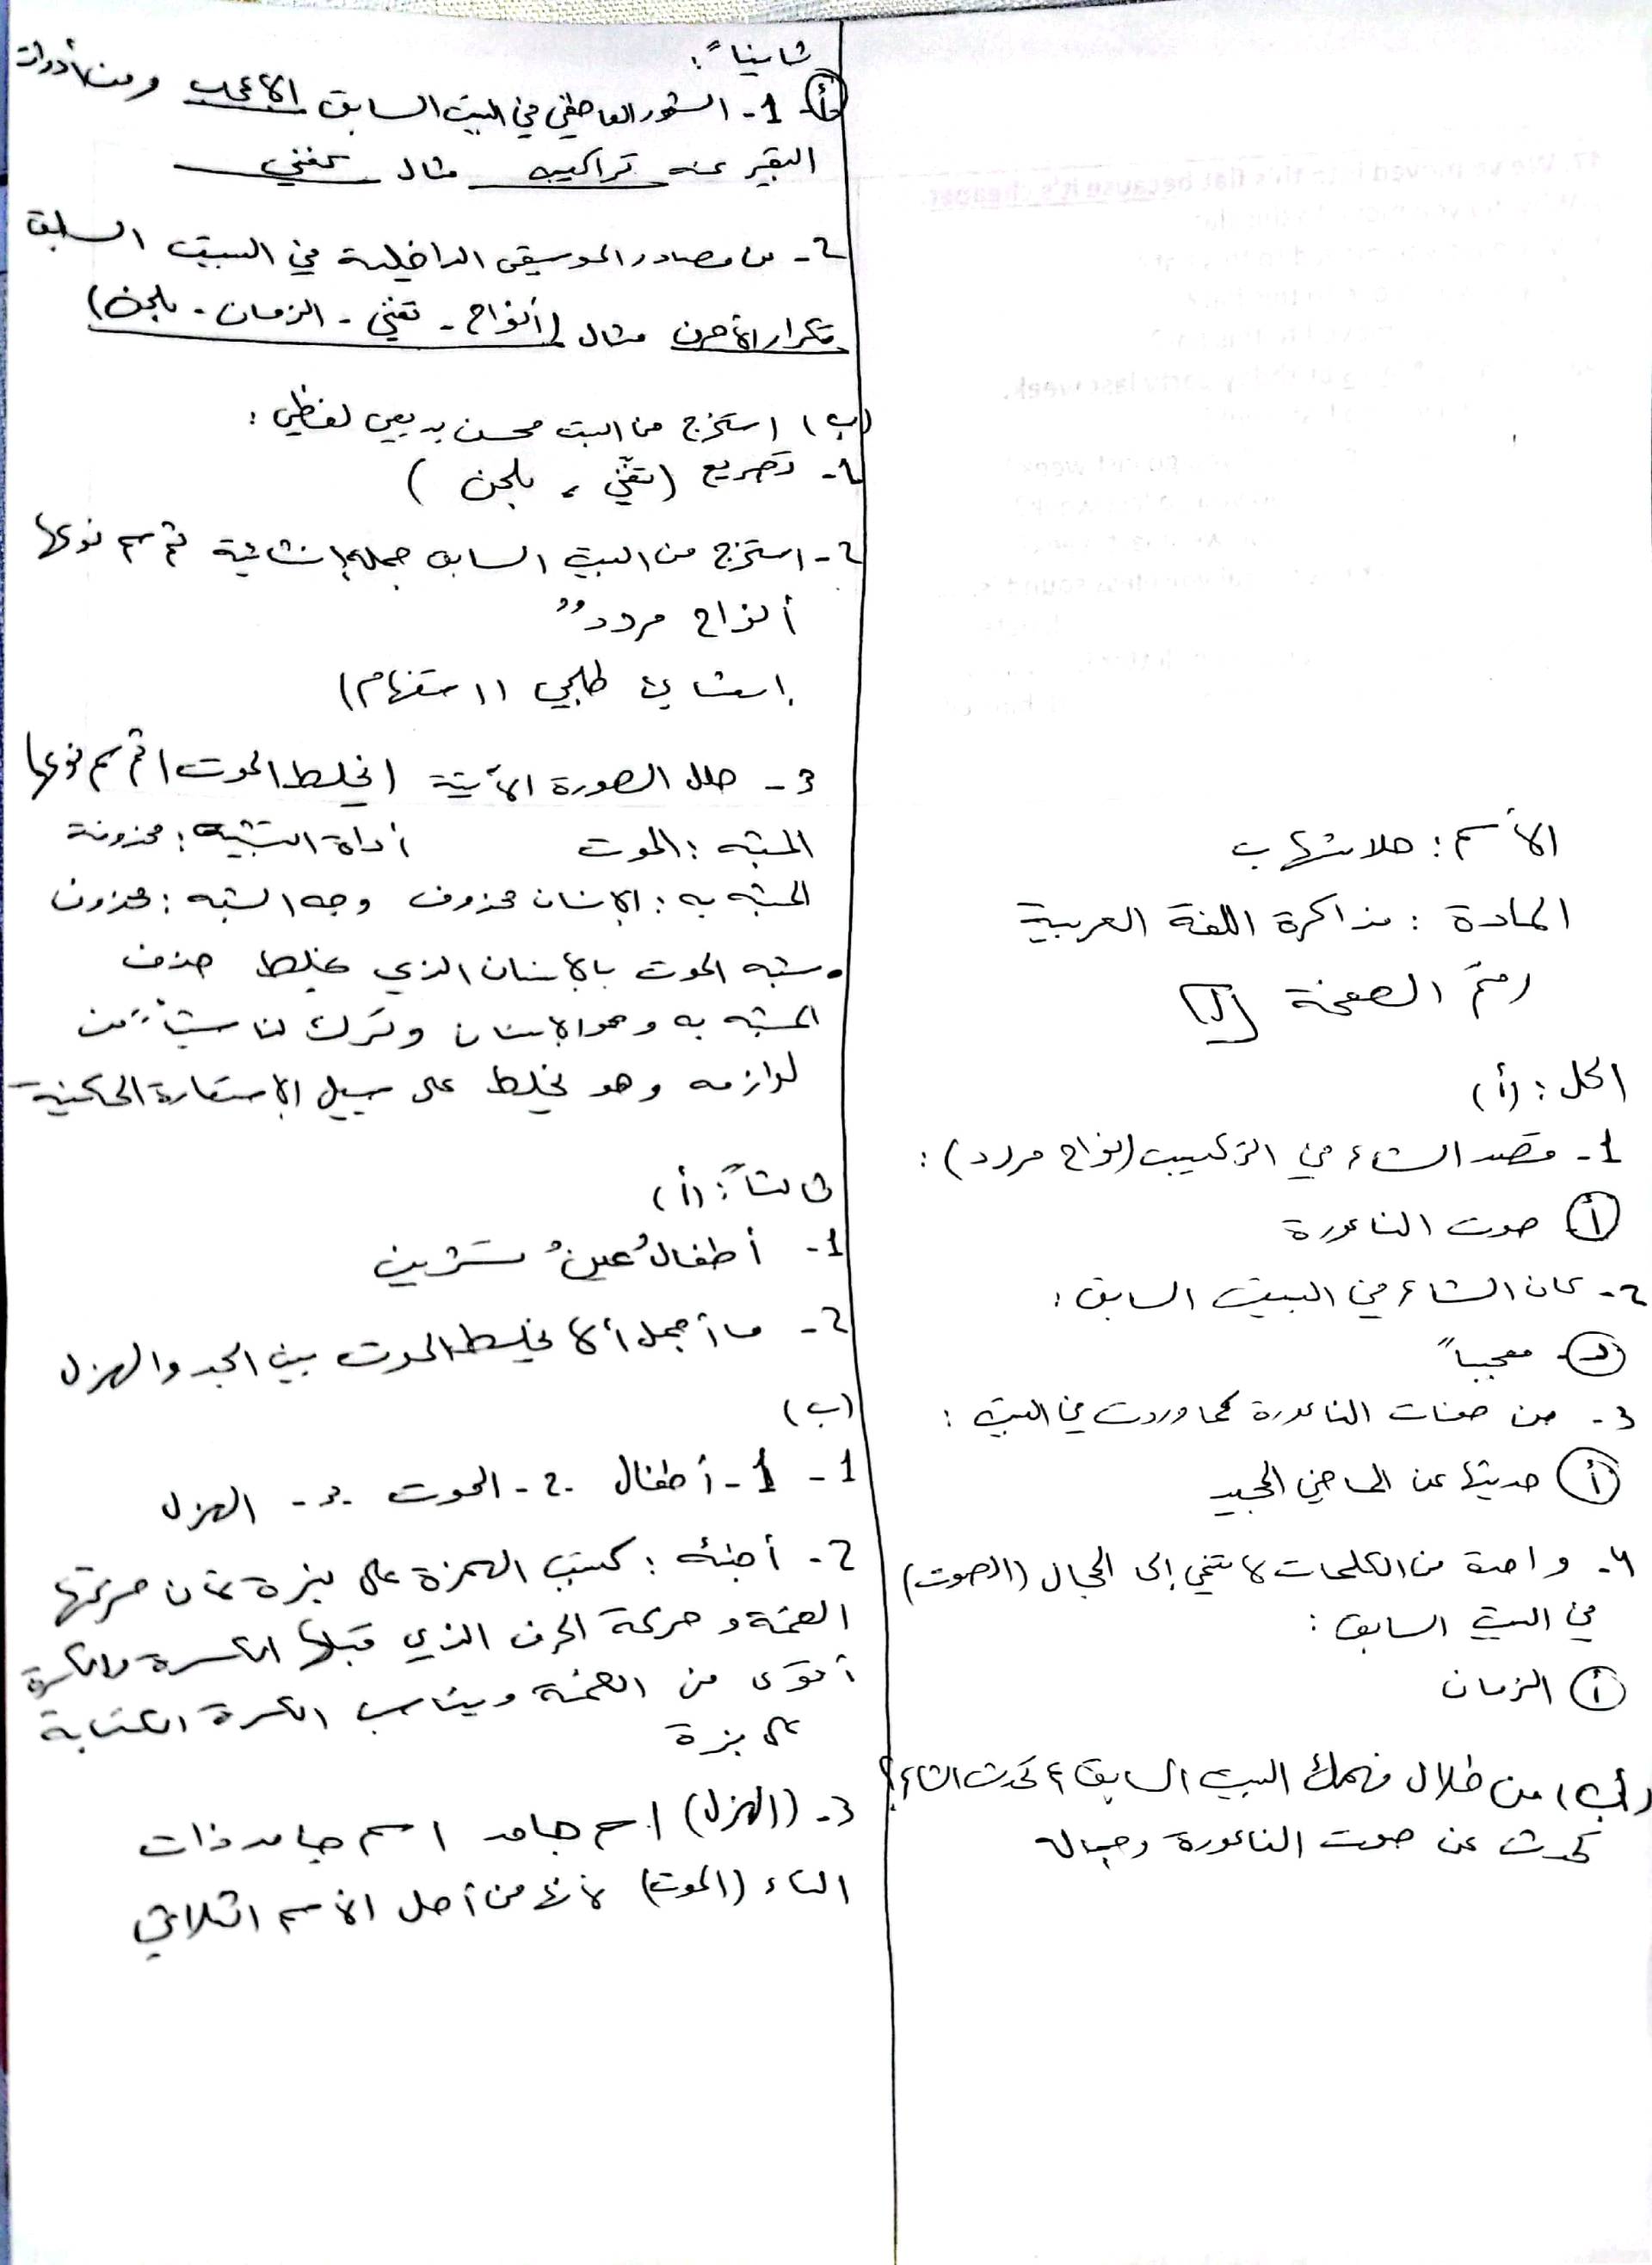 الأسم : حلا شهاب
المادة : مذاكرة اللغة العربية
رقم الصفحة [1]
الحل : (أ)
1- قصد الشاعر في التركيب (نواح مردد) :
أ صوت الناعورة
2- كان الشاعر في البيت السابق :
د- معجباً
3- من صفات الناعورة كما وردت في البيت :
أ حديثها عن الماضي المجيد
4- واحدة من الكلمات لا تنتمي إلى المجال (الصوت)
في البيت السابق :
أ الزمان
(ب) من خلال فهمك البيت السابق عم تحدث الشاعر؟
تحدث عن صوت الناعورة وجماله
ثانياً :
أ- 1- الشعور العاطفي في البيت السابق الاعجاب ومن أدوات
التعبير عنه تراكيب مثال تغني
2- من مصادر الموسيقى الداخلية في البيت السابق
تكرار الأحرف مثال (أنواح - تغني - الزمان - بلحن)
(ب) استخرج من البيت محسن بديعي لفظي :
1- تصريع (تغنّي ، بلحن)
2- استخرج من البيت السابق جملة إنشائية ثم سم نوعها
أنواح مردد"
إنشائي طلبي (استفهام)
3- حلل الصورة الآتية (يخلط الموت) ثم سم نوعها
المشبه : الموت أداة التشبيه : محذوفة
المشبه به : الإنسان محذوف وجه الشبه : محذوف
• شبه الموت بالإنسان الذي يخلط حذف
المشبه به وهو الإنسان وترك لنا شيئاً من
لوازمه وهو يخلط على سبيل الإستعارة المكنية
ثالثاً : (أ)
1- أطفالُ عينُ تشرين
2- ما أجمل ألا يخلط الموت بين الجد والهزل
(ب)
1- 1- أطفال 2- الموت 3- الهزل
2- أجنئه : كتبت الهمزة على نبرة لأن حركتها
الضمة وحركة الحرف الذي قبلها الكسرة والكسرة
أقوى من الضمة ويناسب الكسرة الكتابة
على نبرة
3- (الهزل) اسم جامد اسم جامد ذات
التاء (الموت) لأنها من أصل الاسم الثلاثي